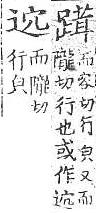 而容切行皃又而
隴切行也或作
而隴切
行皃